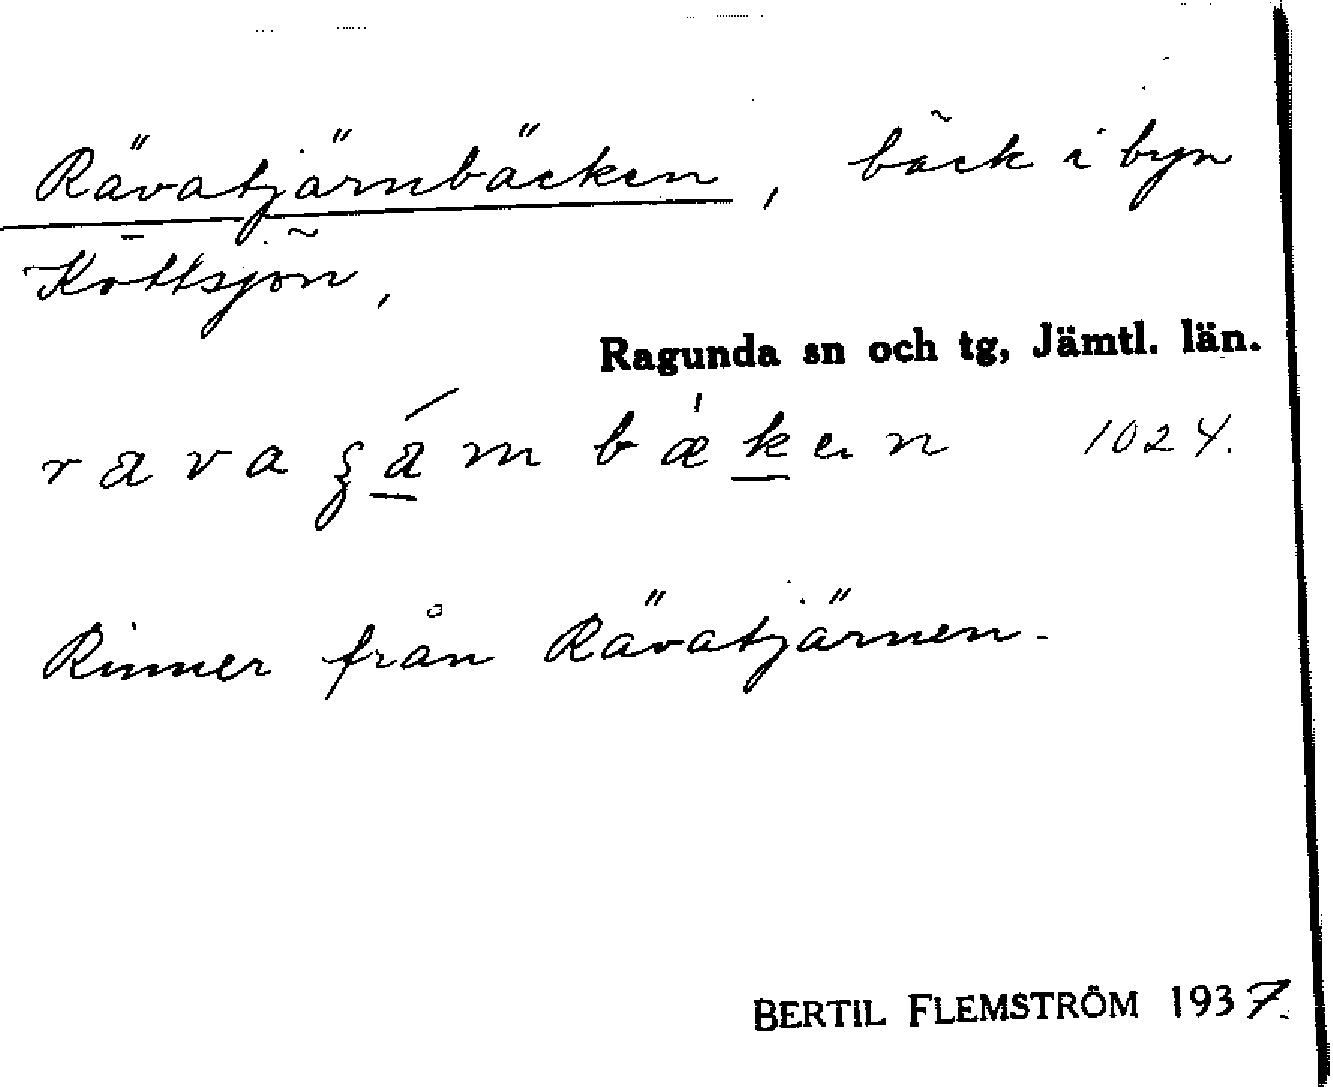 Rävatjärnbäcken, bäck i byn
Köttsjön,
Ragunda sn och tg, Jämtl. län.
1024.
Rinner från Rävatjärnen.
BERTIL FLEMSTRÖM 1937.